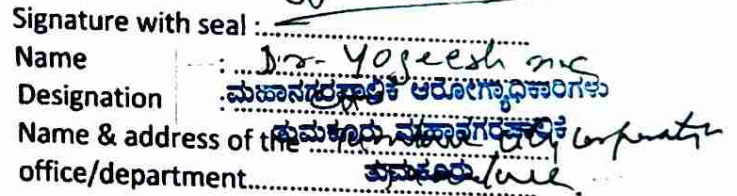 Signature with seal :
Name : Dr. Yogeesh
Designation : ಮಹಾನಗರಪಾಲಿಕೆ ಆರೋಗ್ಯಾಧಿಕಾರಿಗಳು
Name & address of the ತುಮಕೂರು ಮಹಾನಗರಪಾಲಿಕೆ City Corporation
office/department ತುಮಕೂರು